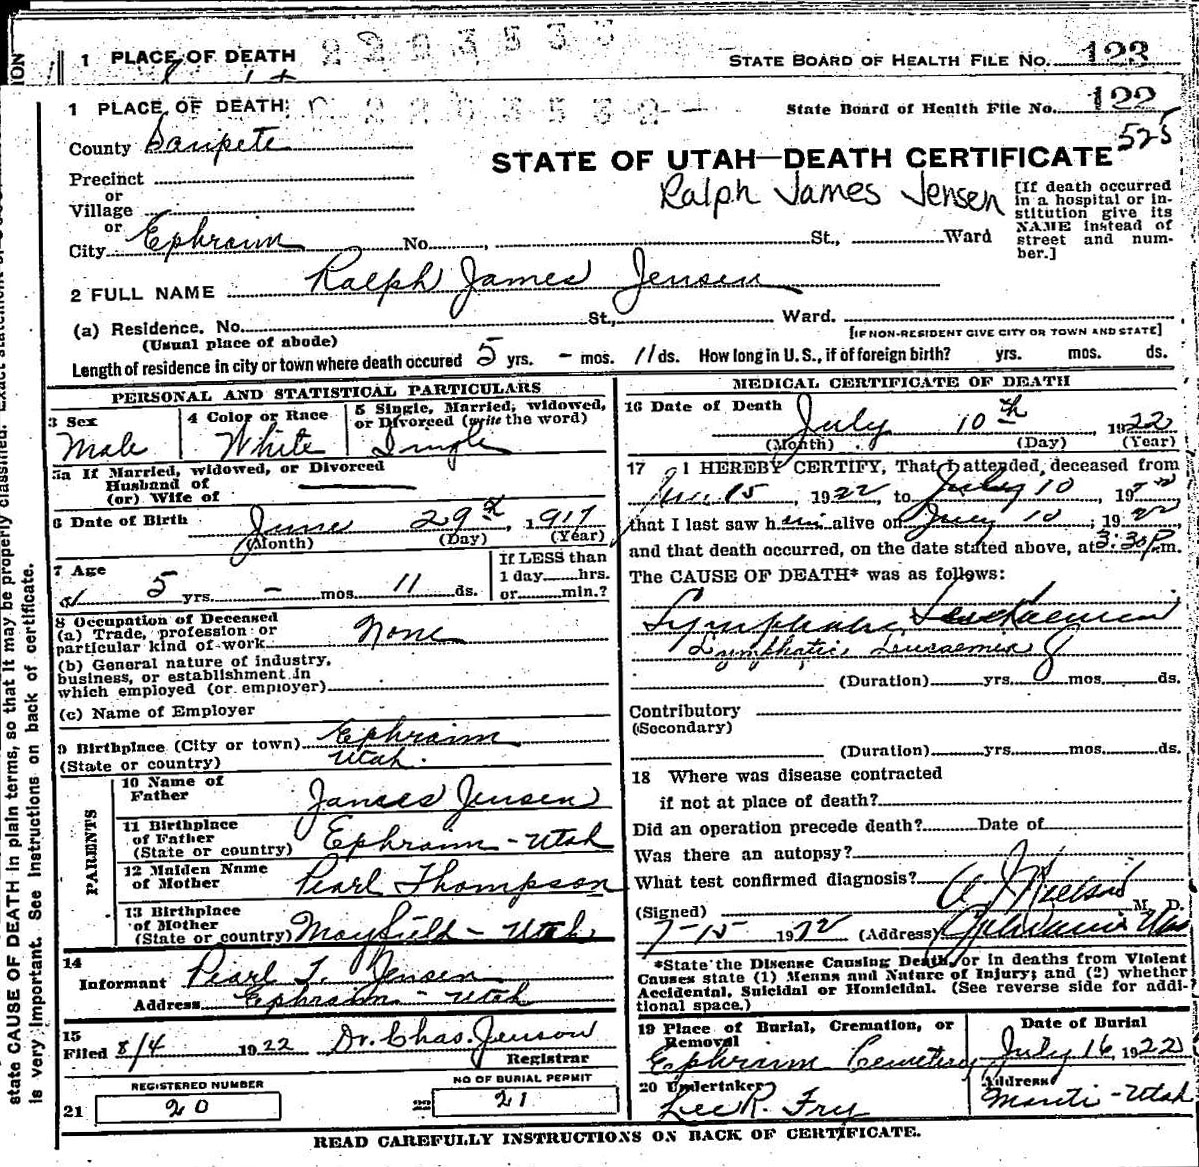 1 PLACE OF DEATH
STATE BOARD OF HEALTH FILE No. 123
1 PLACE OF DEATH:
State Board of Health File No. 122
525
County Sanpete
STATE OF UTAH—DEATH CERTIFICATE
Ralph James Jensen
Precinct
or
Village
or
City Ephraim No. , St., Ward
[If death occurred
in a hospital or in-
stitution give its
NAME instead of
street and num-
ber.]
2 FULL NAME Ralph James Jensen
(a) Residence. No. St., Ward.
(Usual place of abode)
[IF NON-RESIDENT GIVE CITY OR TOWN AND STATE]
Length of residence in city or town where death occured 5 yrs. – mos. 11 ds. How long in U. S., if of foreign birth? yrs. mos. ds.
PERSONAL AND STATISTICAL PARTICULARS
3 Sex
Male
4 Color or Race
White
5 Single, Married, widowed,
or Divorced (write the word)
Single
5a If Married, widowed, or Divorced
Husband of
(or) Wife of
6 Date of Birth June 29th, 1917
(Month) (Day) (Year)
7 Age
5 yrs. – mos. 11 ds.
If LESS than
1 day hrs.
or min.?
8 Occupation of Deceased
(a) Trade, profession or
particular kind of work None
(b) General nature of industry,
business, or establishment in
which employed (or employer)
(c) Name of Employer
9 Birthplace (City or town) Ephraim
(State or country) Utah.
PARENTS
10 Name of
Father James Jensen
11 Birthplace
of Father
(State or country) Ephraim - Utah
12 Maiden Name
of Mother Pearl Thompson
13 Birthplace
of Mother
(State or country) Mayfield - Utah
14
Informant Pearl T. Jensen
Address Ephraim - Utah
15
Filed 8/4 1922 Dr. Chas. Jenson
Registrar
REGISTERED NUMBER
21 20
NO OF BURIAL PERMIT
22 21
MEDICAL CERTIFICATE OF DEATH
16 Date of Death
July 10th 1922
(Month) (Day) (Year)
17 I HEREBY CERTIFY, That I attended, deceased from
June 15, 1922, to July 10, 1922
that I last saw him alive on July 10, 1922
and that death occurred, on the date stated above, at 3:30 P.m.
The CAUSE OF DEATH* was as follows:
Lymphatic Leuchaemia
Lymphatic Leucaemia
(Duration) yrs. mos. ds.
Contributory
(Secondary)
(Duration) yrs. mos. ds.
18 Where was disease contracted
if not at place of death?
Did an operation precede death? Date of
Was there an autopsy?
What test confirmed diagnosis?
(Signed) A J Nielson M. D.
7-15 1922 (Address) Ephraim Utah
*State the Disease Causing Death, or in deaths from Violent
Causes state (1) Means and Nature of Injury; and (2) whether
Accidental, Suicidal or Homicidal. (See reverse side for addi-
tional space.)
19 Place of Burial, Cremation, or
Removal
Ephraim Cemetery
Date of Burial
July 16, 1922
20 Undertaker
Lee R. Fry
Address
Manti - Utah
READ CAREFULLY INSTRUCTIONS ON BACK OF CERTIFICATE.
state CAUSE OF DEATH in plain terms, so that it may be properly classified. Exact statement of
is very important. See instructions on back of certificate.